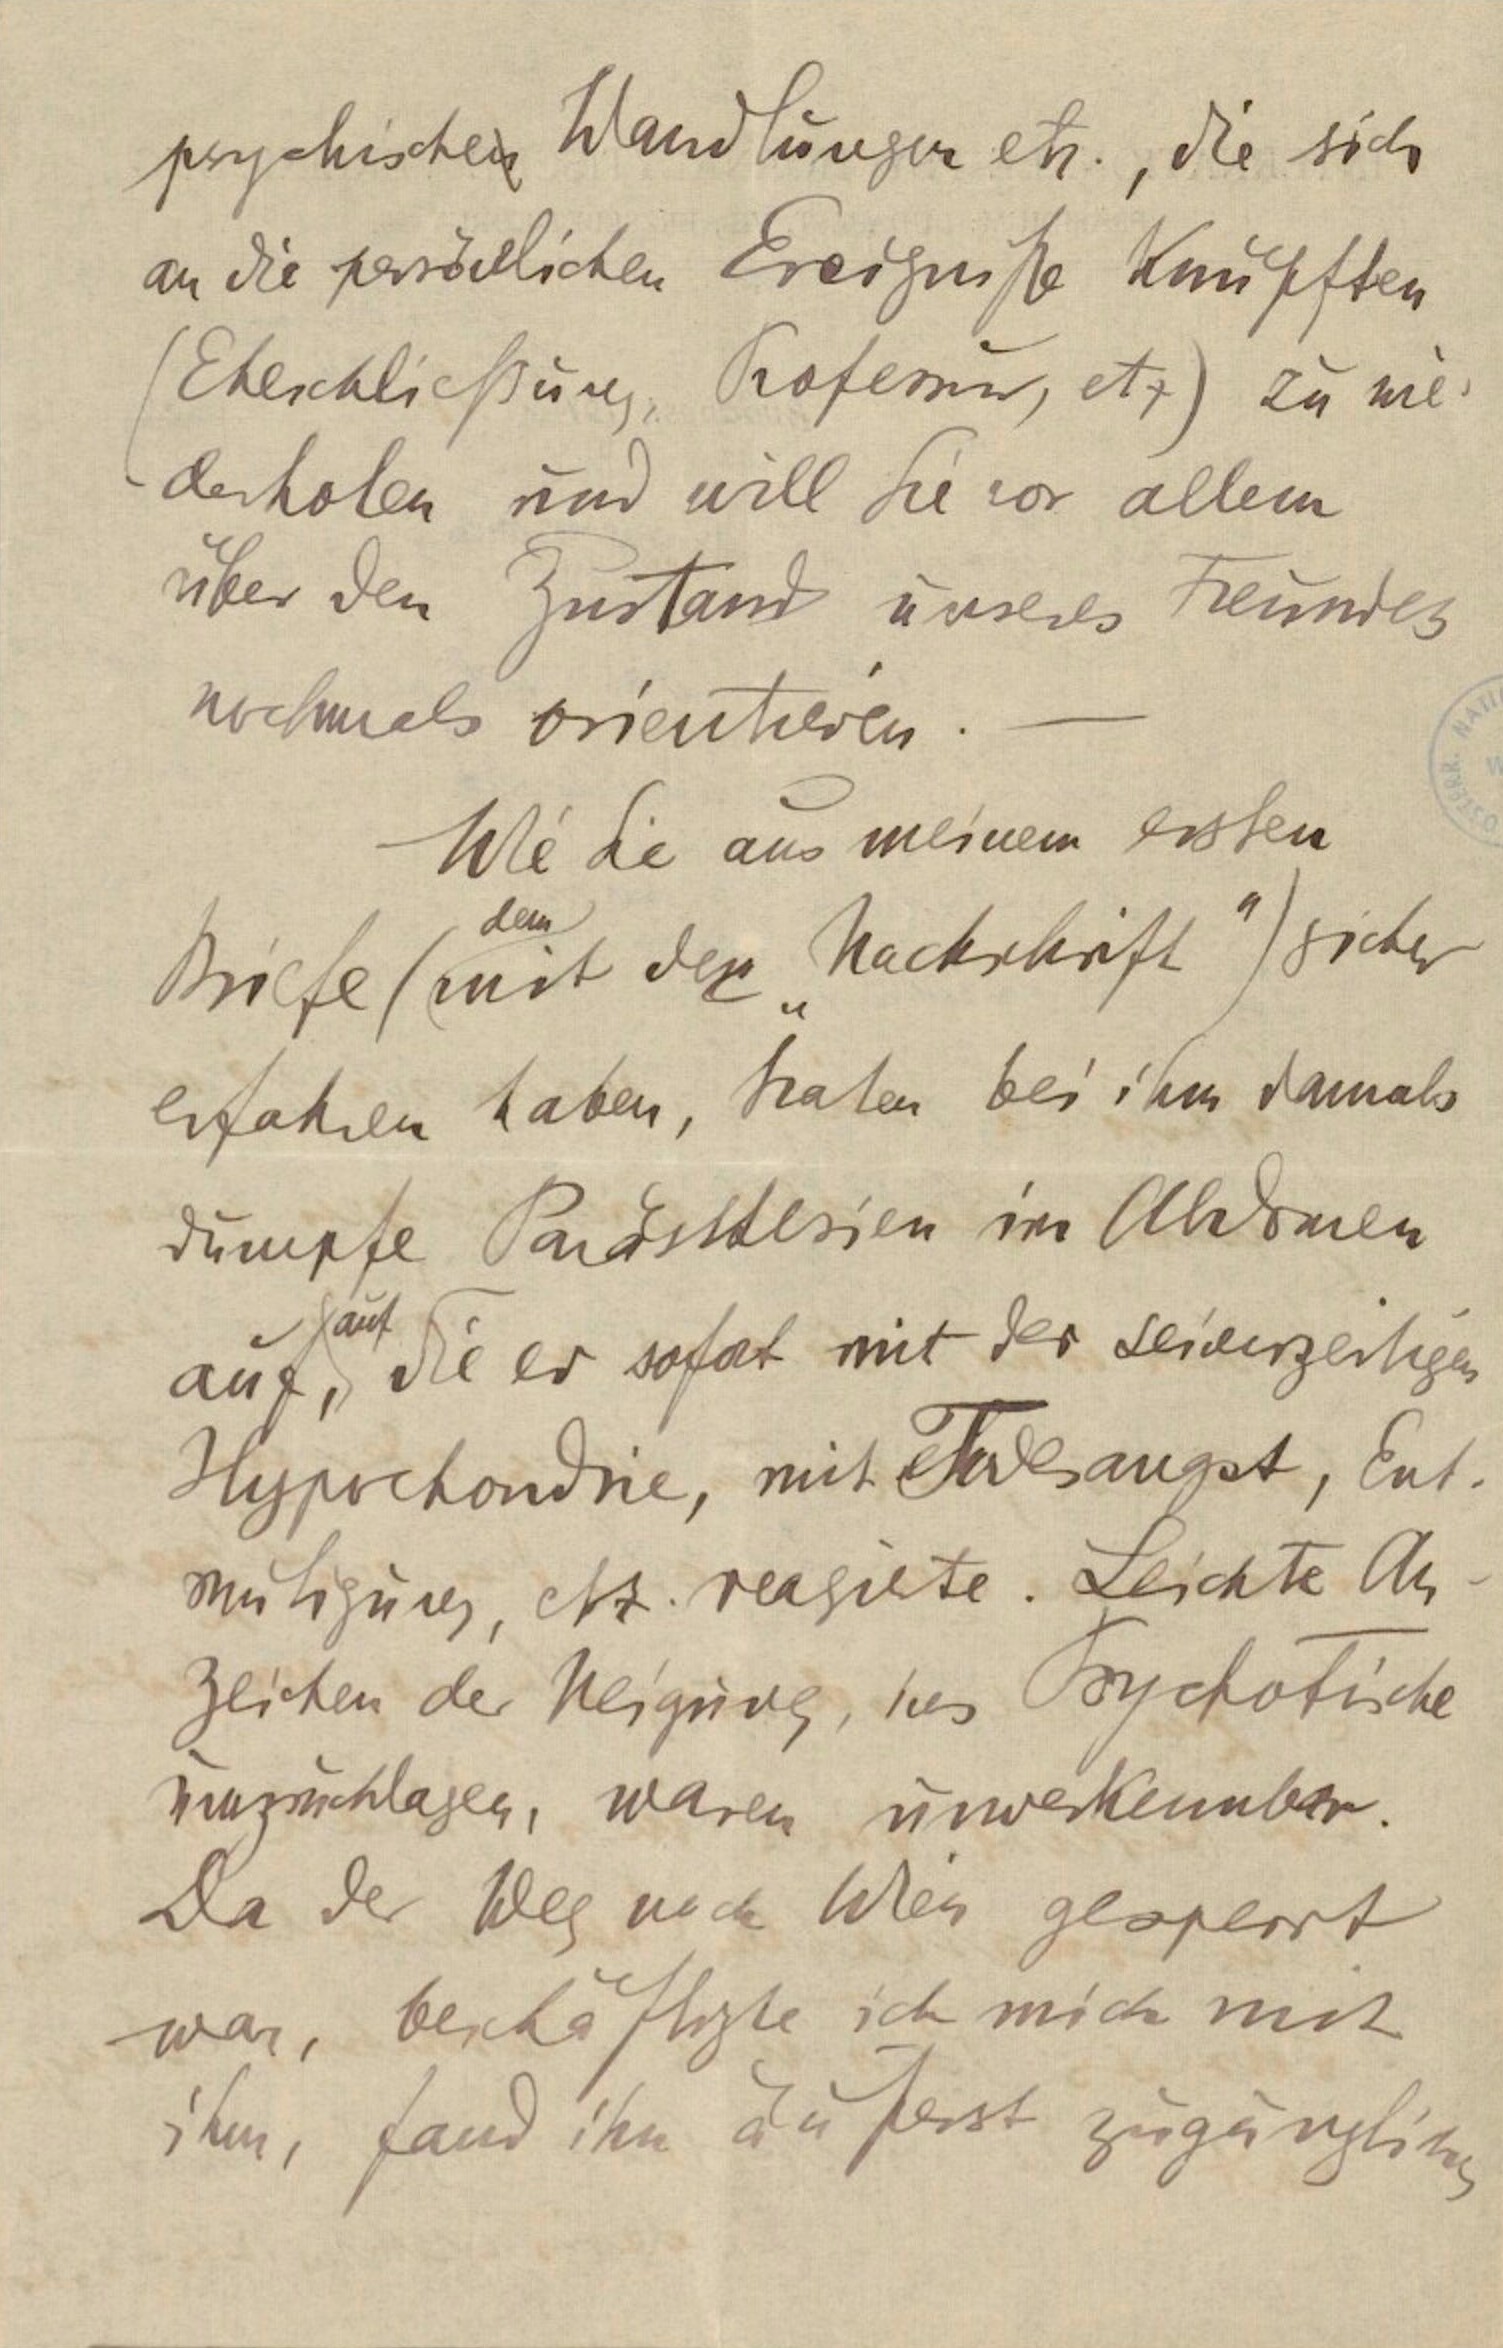 psychischen Wandlungen etz., die sich
an die persönlichen Ereigniße knüpften
(Eheschließung, Professur, etz) zu wie-
derholen und will Sie vor allem
über den Zustand unseres Freundes
nochmals orientieren. —
Wie Sie aus meinem ersten
dem
Briefe (mit der „Nachschrift") sicher
erfahren haben, traten bei ihm damals
dumpfe Parästhesien im Abdomen
auf
auf, die er sofort mit der seinerzeitigen
Hypochondrie, mit Todesangst, Ent-
mutigung, etz. reagierte. Leichte An-
zeichen der Neigung, ins Psychotische
umzuschlagen, waren unverkennbar.
Da der Weg nach Wien gesperrt
war, beschäftigte ich mich mit
ihm, fand ihn äußerst zugänglich
ÖSTERR. NATI